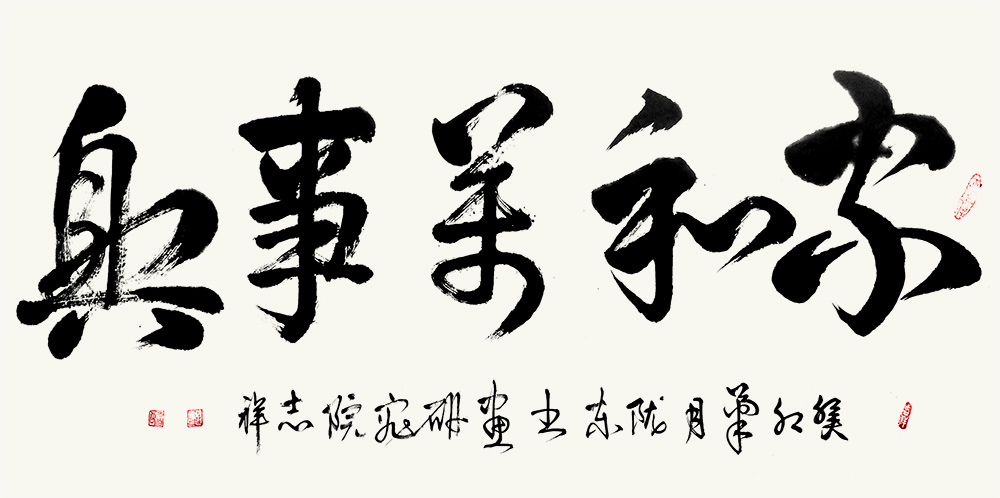 家和萬事興
癸卯菊月陇东书画研究院志祥